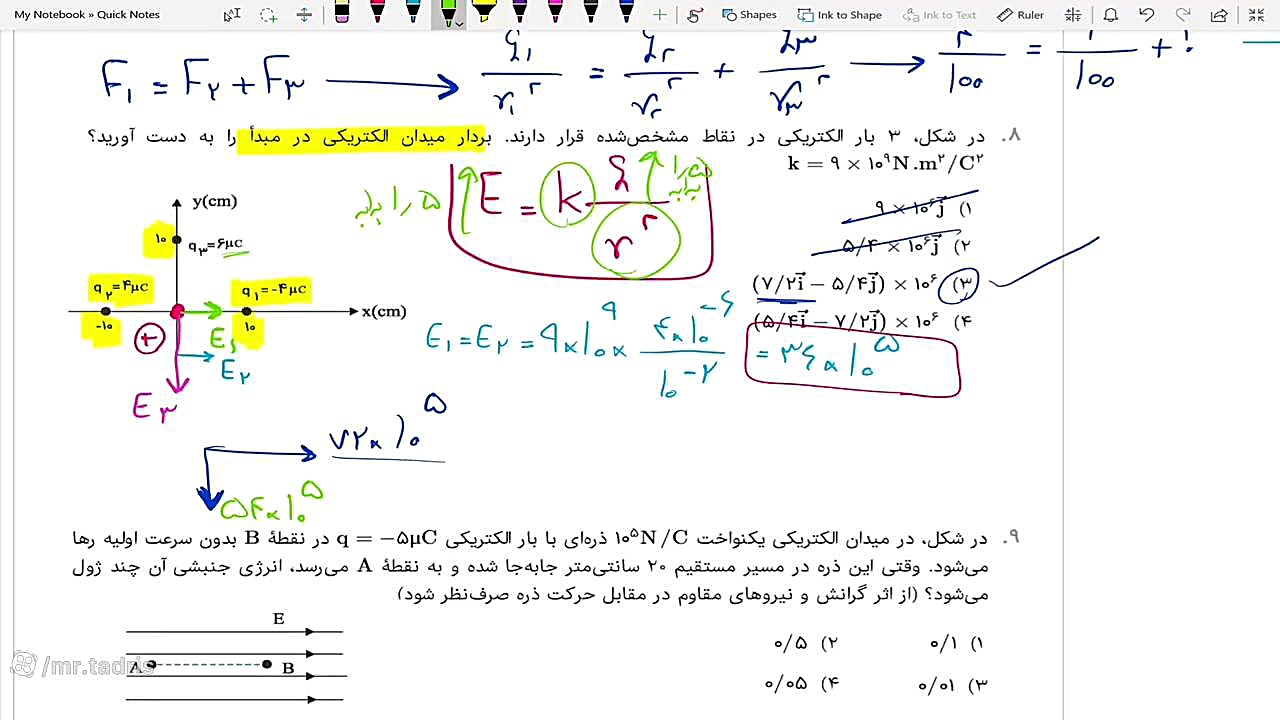 My Notebook » Quick Notes
Shapes
Ink to Shape
Ink to Text
Ruler
F۱ = F۲ + F۳ → q۱/r۱² = q۲/r۲² + q۳/r۳² → /۱۰۰ = /۱۰۰ + ?
۸. در شکل، ۳ بار الکتریکی در نقاط مشخص‌شده قرار دارند. بردار میدان الکتریکی در مبدأ را به دست آورید؟
k = ۹ × ۱۰⁹N.m²/C²
۱) ۹ × ۱۰⁶j⃗
۲) ۵/۴ × ۱۰⁶j⃗
۳) (۷/۲i⃗ − ۵/۴j⃗) × ۱۰⁶
۴) (۵/۴i⃗ − ۷/۲j⃗) × ۱۰⁶
۱٫۵ برابر
E = k q/r²
۱٫۵ برابر
y(cm)
۱۰
q۳=۶μC
q۲=۴μC
q۱=−۴μC
x(cm)
−۱۰
۱۰
+
E۱
E۲
E۳
E۱ = E۲ = ۹×۱۰⁹ × ۴×۱۰⁻⁶/۱۰⁻² = ۳۶×۱۰⁵
۷۲×۱۰⁵
۵۴×۱۰⁵
۹. در شکل، در میدان الکتریکی یکنواخت ۱۰⁵N/C ذره‌ای با بار الکتریکی q = −۵μC در نقطهٔ B بدون سرعت اولیه رها
می‌شود. وقتی این ذره در مسیر مستقیم ۲۰ سانتی‌متر جابه‌جا شده و به نقطهٔ A می‌رسد، انرژی جنبشی آن چند ژول
می‌شود؟ (از اثر گرانش و نیروهای مقاوم در مقابل حرکت ذره صرف‌نظر شود)
E
A
B
۱) ۰/۱
۲) ۰/۵
۳) ۰/۰۱
۴) ۰/۰۵
/mr.tadris